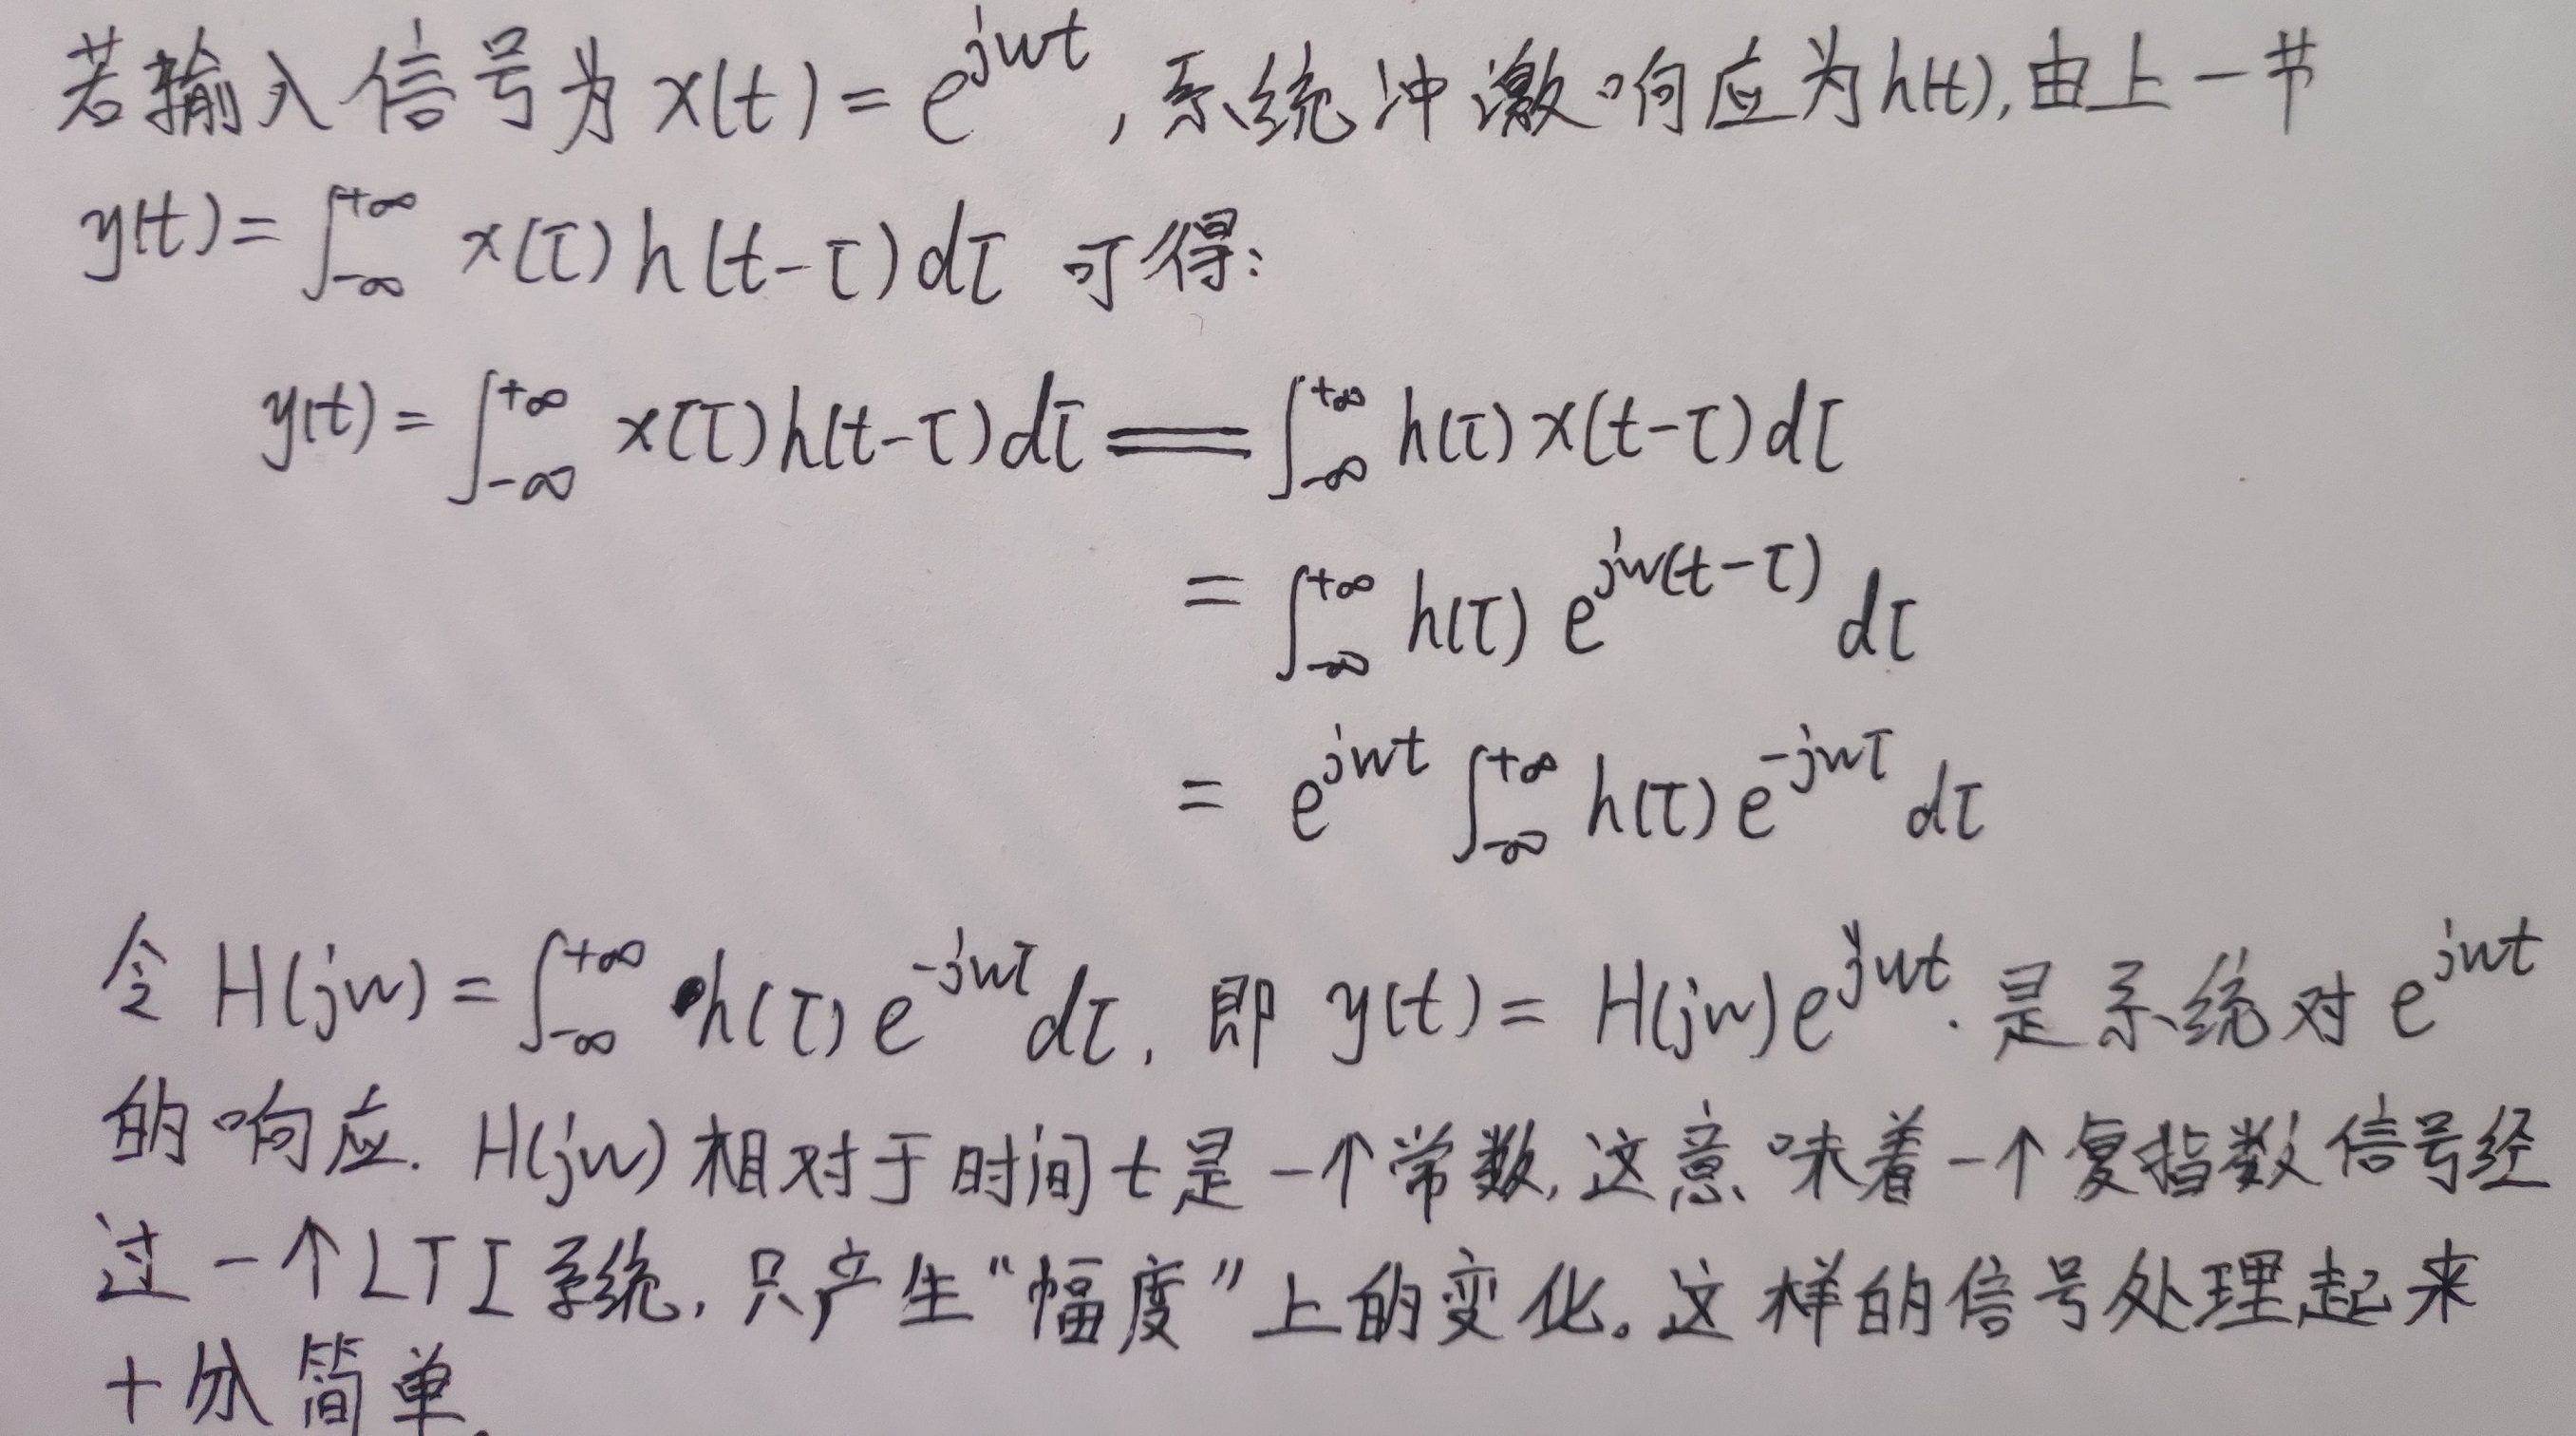 若输入信号为 x(t) = e^{jwt}, 系统冲激响应为h(t), 由上一节
y(t) = ∫_{-∞}^{+∞} x(τ) h(t-τ) dτ 可得:
y(t) = ∫_{-∞}^{+∞} x(τ) h(t-τ) dτ = ∫_{-∞}^{+∞} h(τ) x(t-τ) dτ
= ∫_{-∞}^{+∞} h(τ) e^{jw(t-τ)} dτ
= e^{jwt} ∫_{-∞}^{+∞} h(τ) e^{-jwτ} dτ
令 H(jw) = ∫_{-∞}^{+∞} h(τ) e^{-jwτ} dτ, 即 y(t) = H(jw) e^{jwt}. 是系统对 e^{jwt}
的响应. H(jw) 相对于时间 t 是一个常数, 这意味着一个复指数信号经
过一个LTI系统, 只产生“幅度”上的变化。这样的信号处理起来
十分简单.